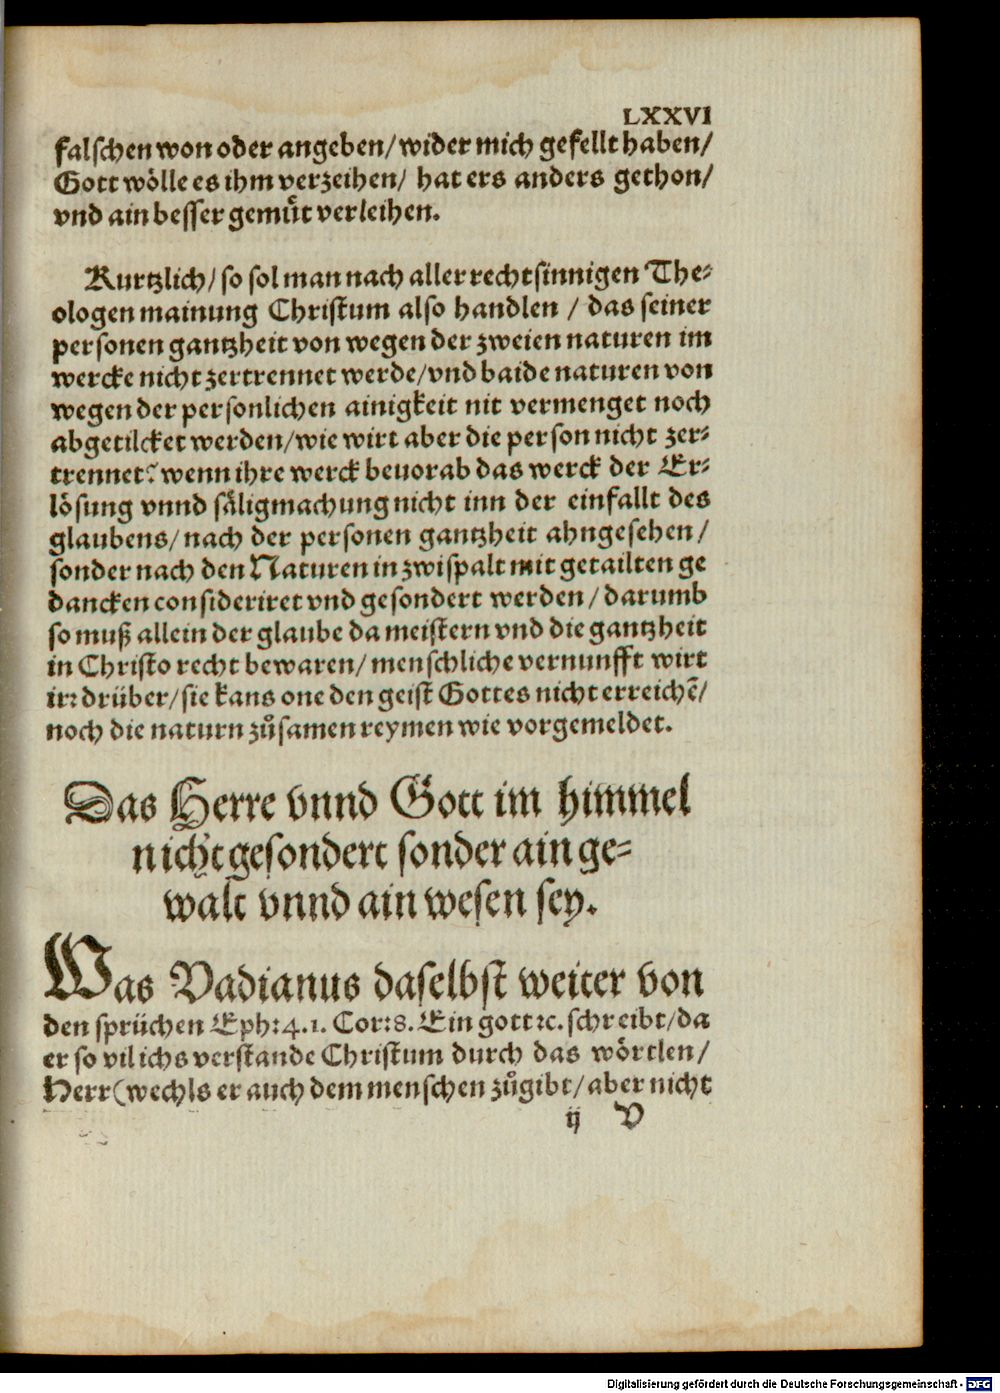 LXXVI
falschen won oder angeben/ wider mich gefellt haben/
Gott wölle es ihm verzeihen/ hat ers anders gethon/
vnd ain besser gemuͤt verleihen.
Kurtzlich/ so sol man nach aller rechtsinnigen The⸗
ologen mainung Christum also handlen / das seiner
personen gantzheit von wegen der zweien naturen im
wercke nicht zertrennet werde/ vnd baide naturen von
wegen der personlichen ainigkeit nit vermenget noch
abgetilcket werden/ wie wirt aber die person nicht zer⸗
trennet? wenn ihre werck beuorab das werck der Er⸗
lösung vnnd säligmachung nicht inn der einfallt des
glaubens/ nach der personen gantzheit ahngesehen/
sonder nach den Naturen in zwispalt mit getailten ge
dancken consideriret vnd gesondert werden / darumb
so muß allein der glaube da meistern vnd die gantzheit
in Christo recht bewaren/ menschliche vernunfft wirt
irꝛ drüber/ sie kans one den geist Gottes nicht erreichē/
noch die naturn zuͦsamen reymen wie vorgemeldet.
Das Herre vnnd Gott im himmel
nicht gesondert sonder ain ge⸗
walt vnnd ain wesen sey.
Was Vadianus daselbst weiter von
den sprüchen Eph: 4. 1. Cor: 8. Ein gott ꝛc. schreibt/ da
er so vil ichs verstande Christum durch das wörtlen/
Herr (wechls er auch dem menschen zuͦgibt/ aber nicht
ij V
Digitalisierung gefördert durch die Deutsche Forschungsgemeinschaft - DFG